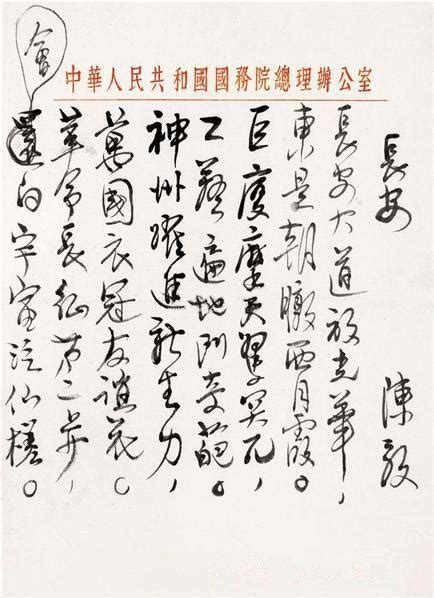 中華人民共和國國務院總理辦公室
長安 陳毅
長安大道放光華，
東是朝暾西月霞。
巨廈摩天突兀，
工藝遍地鬥奇葩。
神州躍進新生力，
萬國衣冠友誼花。
革命長征第二步，
會還向宇宙泛仙槎。